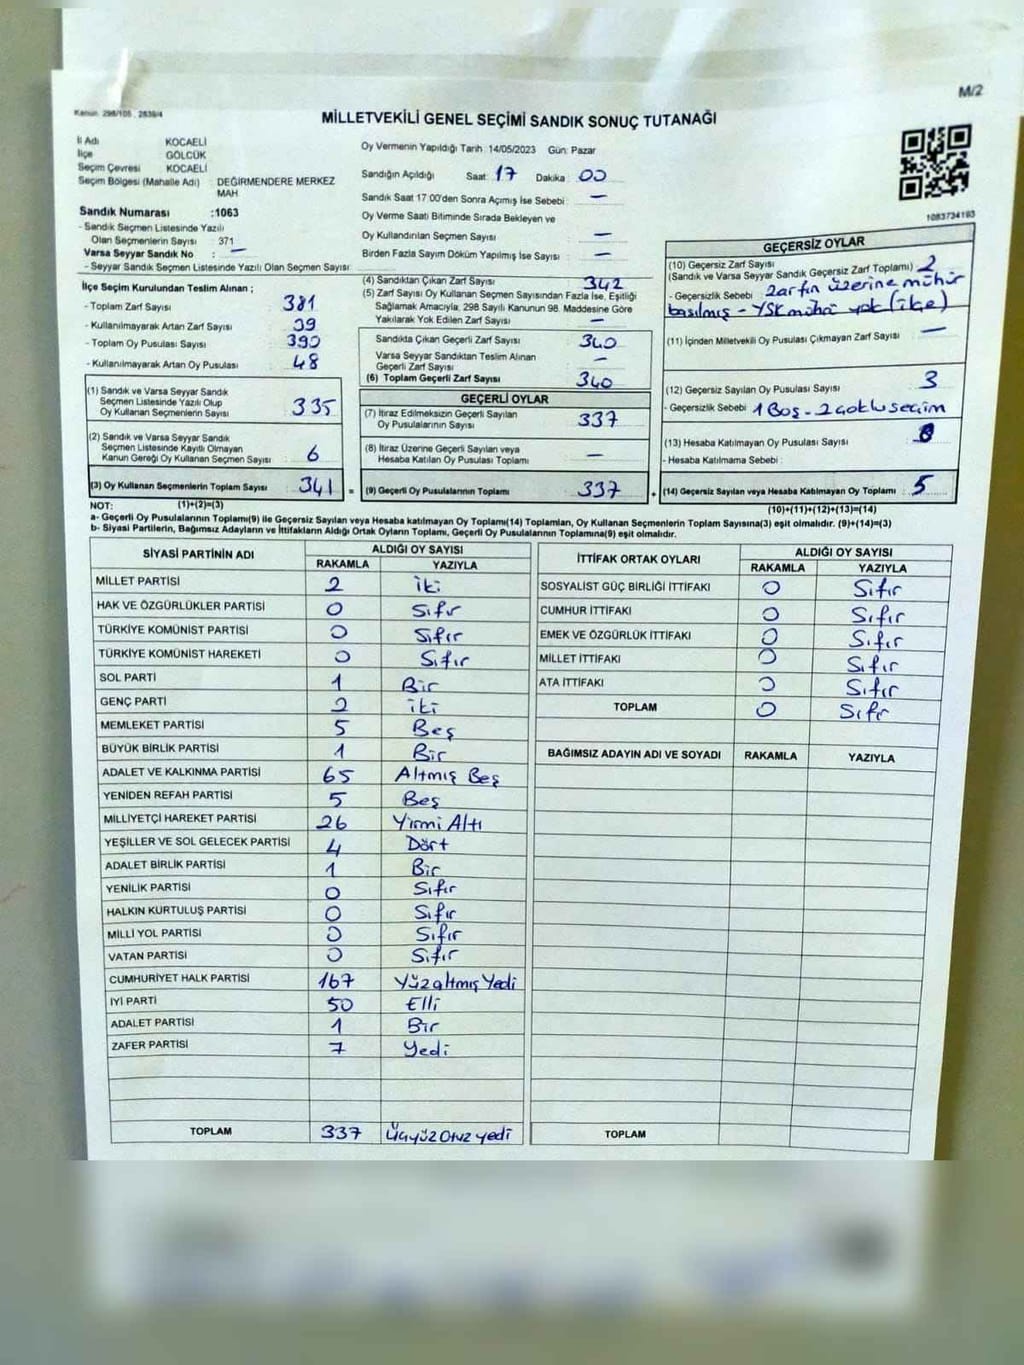 M/2
Kanun: 298/105 , 2839/4
MİLLETVEKİLİ GENEL SEÇİMİ SANDIK SONUÇ TUTANAĞI
İl Adı KOCAELİ
İlçe GÖLCÜK
Seçim Çevresi KOCAELİ
Seçim Bölgesi (Mahalle Adı) : DEĞİRMENDERE MERKEZ
MAH
Sandık Numarası :1063
- Sandık Seçmen Listesinde Yazılı
Olan Seçmenlerin Sayısı : 371
Varsa Seyyar Sandık No : —
- Seyyar Sandık Seçmen Listesinde Yazılı Olan Seçmen Sayısı:
İlçe Seçim Kurulundan Teslim Alınan ;
- Toplam Zarf Sayısı : 381
- Kullanılmayarak Artan Zarf Sayısı : 39
- Toplam Oy Pusulası Sayısı : 390
- Kullanılmayarak Artan Oy Pusulası : 48
(1) Sandık ve Varsa Seyyar Sandık
Seçmen Listesinde Yazılı Olup
Oy Kullanan Seçmenlerin Sayısı : 335
(2) Sandık ve Varsa Seyyar Sandık
Seçmen Listesinde Kayıtlı Olmayan
Kanun Gereği Oy Kullanan Seçmen Sayısı : 6
(3) Oy Kullanan Seçmenlerin Toplam Sayısı : 341 =
Oy Vermenin Yapıldığı Tarih: 14/05/2023 Gün: Pazar
Sandığın Açıldığı Saat: 17 Dakika : 00
Sandık Saat 17:00'den Sonra Açımış İse Sebebi : —
Oy Verme Saati Bitiminde Sırada Bekleyen ve
Oy Kullandırılan Seçmen Sayısı : —
Birden Fazla Sayım Döküm Yapılmış İse Sayısı : —
(4) Sandıktan Çıkan Zarf Sayısı : 342
(5) Zarf Sayısı Oy Kullanan Seçmen Sayısından Fazla İse, Eşitliği
Sağlamak Amacıyla, 298 Sayılı Kanunun 98. Maddesine Göre
Yakılarak Yok Edilen Zarf Sayısı : —
Sandıkta Çıkan Geçerli Zarf Sayısı : 340
Varsa Seyyar Sandıktan Teslim Alınan
Geçerli Zarf Sayısı : —
(6) Toplam Geçerli Zarf Sayısı : 340
GEÇERLİ OYLAR
(7) İtiraz Edilmeksizin Geçerli Sayılan
Oy Pusulalarının Sayısı : 337
(8) İtiraz Üzerine Geçerli Sayılan veya
Hesaba Katılan Oy Pusulası Toplamı : —
(9) Geçerli Oy Pusulalarının Toplamı : 337 +
1083734193
GEÇERSİZ OYLAR
(10) Geçersiz Zarf Sayısı
(Sandık ve Varsa Seyyar Sandık Geçersiz Zarf Toplamı) : 2
- Geçersizlik Sebebi : Zarfın üzerine mühür
basılmış - YSK mührü yok (ilçe)
(11) İçinden Milletvekili Oy Pusulası Çıkmayan Zarf Sayısı : —
(12) Geçersiz Sayılan Oy Pusulası Sayısı : 3
- Geçersizlik Sebebi : 1 Boş - 2 çoklu seçim
(13) Hesaba Katılmayan Oy Pusulası Sayısı :
- Hesaba Katılmama Sebebi :
(14) Geçersiz Sayılan veya Hesaba Katılmayan Oy Toplamı : 5
NOT: (1)+(2)=(3) (10)+(11)+(12)+(13)=(14)
a- Geçerli Oy Pusulalarının Toplamı(9) ile Geçersiz Sayılan veya Hesaba katılmayan Oy Toplamı(14) Toplamları, Oy Kullanan Seçmenlerin Toplam Sayısına(3) eşit olmalıdır. (9)+(14)=(3)
b- Siyasi Partilerin, Bağımsız Adayların ve İttifakların Aldığı Ortak Oyların Toplamı, Geçerli Oy Pusulalarının Toplamına(9) eşit olmalıdır.
SİYASİ PARTİNİN ADI ALDIĞI OY SAYISI
RAKAMLA YAZIYLA
MİLLET PARTİSİ 2 İki
HAK VE ÖZGÜRLÜKLER PARTİSİ 0 Sıfır
TÜRKİYE KOMÜNİST PARTİSİ 0 Sıfır
TÜRKİYE KOMÜNİST HAREKETİ 0 Sıfır
SOL PARTİ 1 Bir
GENÇ PARTİ 2 iki
MEMLEKET PARTİSİ 5 Beş
BÜYÜK BİRLİK PARTİSİ 1 Bir
ADALET VE KALKINMA PARTİSİ 65 Altmış Beş
YENİDEN REFAH PARTİSİ 5 Beş
MİLLİYETÇİ HAREKET PARTİSİ 26 Yirmi Altı
YEŞİLLER VE SOL GELECEK PARTİSİ 4 Dört
ADALET BİRLİK PARTİSİ 1 Bir
YENİLİK PARTİSİ 0 Sıfır
HALKIN KURTULUŞ PARTİSİ 0 Sıfır
MİLLİ YOL PARTİSİ 0 Sıfır
VATAN PARTİSİ 0 Sıfır
CUMHURİYET HALK PARTİSİ 167 Yüzaltmış Yedi
İYİ PARTİ 50 Elli
ADALET PARTİSİ 1 Bir
ZAFER PARTİSİ 7 Yedi
TOPLAM 337 Üçyüz Otuz yedi
İTTİFAK ORTAK OYLARI ALDIĞI OY SAYISI
RAKAMLA YAZIYLA
SOSYALİST GÜÇ BİRLİĞİ İTTİFAKI 0 Sıfır
CUMHUR İTTİFAKI 0 Sıfır
EMEK VE ÖZGÜRLÜK İTTİFAKI 0 Sıfır
MİLLET İTTİFAKI 0 Sıfır
ATA İTTİFAKI 0 Sıfır
TOPLAM 0 Sıfr
BAĞIMSIZ ADAYIN ADI VE SOYADI RAKAMLA YAZIYLA
TOPLAM